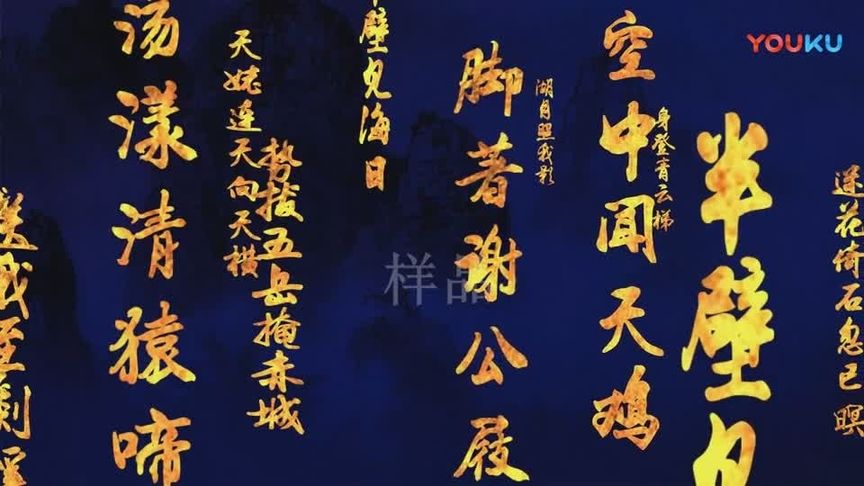 YOUKU
莲花倚石忽已暝
半壁见
身登青云梯
空中闻天鸡
湖月照我影
脚著谢公屐
样品
半壁见海日
势拔五岳掩赤城
天姥连天向天横
荡漾清猿啼
送我至剡溪